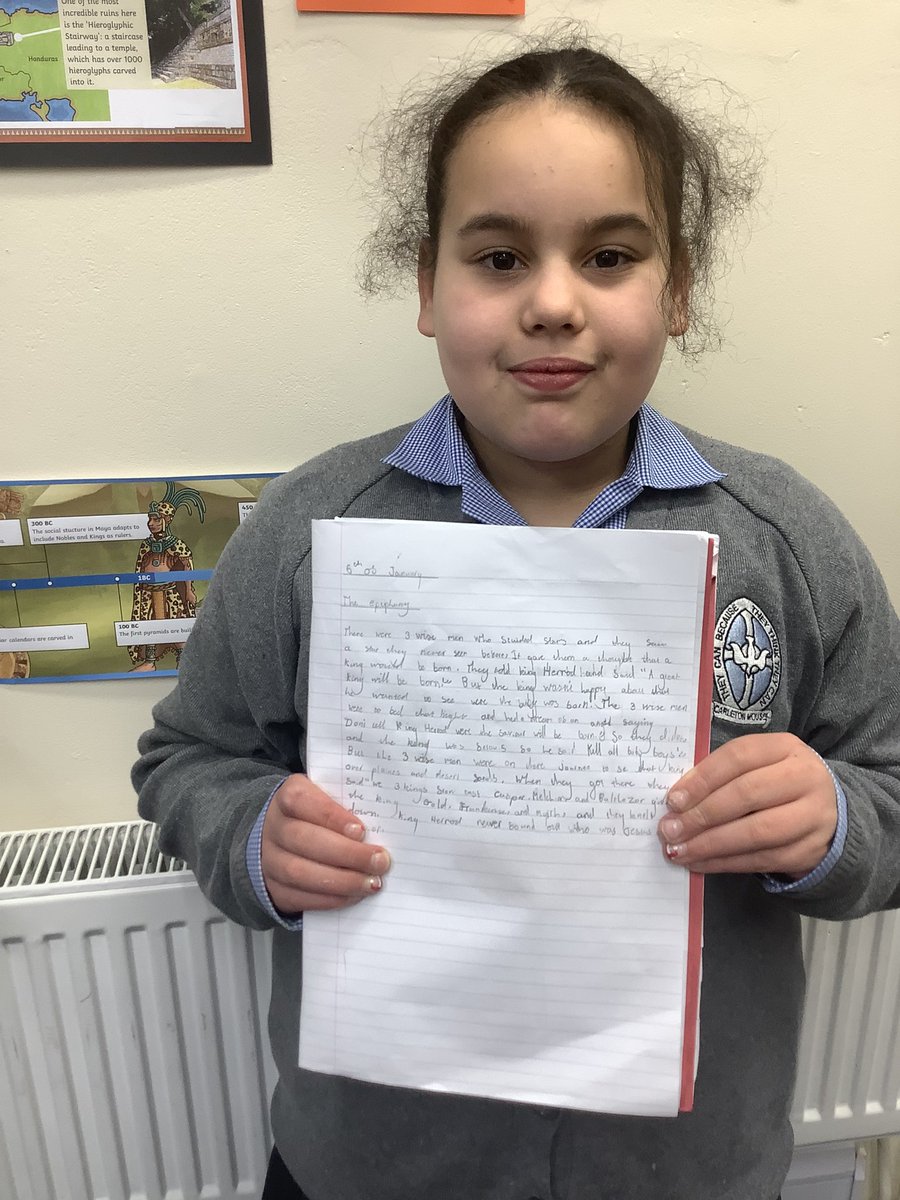 One of the most
incredible ruins here
is the 'Hieroglyphic
Stairway': a staircase
leading to a temple,
which has over 1000
hieroglyphs carved
into it.
Honduras
450
300 BC
The social stucture in Maya adapts to
include Nobles and Kings as rulers.
1BC
100 BC
The first pyramids are buil
ar calendars are carved in
THEY CAN BECAUSE THEY THINK THEY CAN
CARLETON HOUSE
6th of January
The epiphany
There were 3 wise men who studed stars and they seen
a star they never seen before. It gave them a thought that a
king would be born. They told king Herrod and said "A great
king will be born" But the king wasn't happy about that
he wanted to see were the baby was born. The 3 wise men
were to bed that night and had a dream of an angel saying
Dont tell King Herod were the saviour will be born! So they
and the king was so he said Kill all baby boys
But the 3 wise men were on there to se that king
over plaines and desert sands. When they got there they
said "we 3 kings Caspar, Melchior and Balthazar give
the king gold, and and they knelt
down. King Herrod never found out who was Jesus